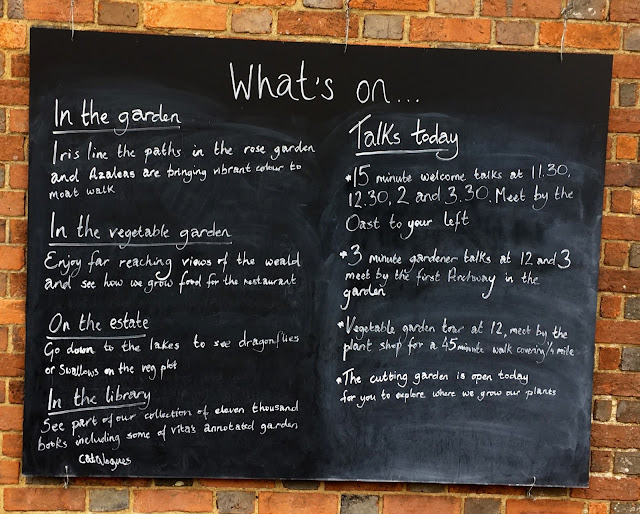 What's on...
In the garden
Iris line the paths in the rose garden
and Azaleas are bringing vibrant colour to
moat walk
In the vegetable garden
Enjoy far reaching views of the weald
and see how we grow food for the restaurant
On the estate
Go down to the lakes to see dragonflies
or swallows on the veg plot
In the library
See part of our collection of eleven thousand
books including some of vita's annotated garden
catalogues
Talks today
*15 minute welcome talks at 11.30,
12.30, 2 and 3.30. Meet by the
Oast to your left
*3 minute gardener talks at 12 and 3
meet by the first Archway in the
garden
*Vegetable garden tour at 12, meet by the
plant shop for a 45 minute walk covering 1/4 mile
*The cutting garden is open today
for you to explore where we grow our plants